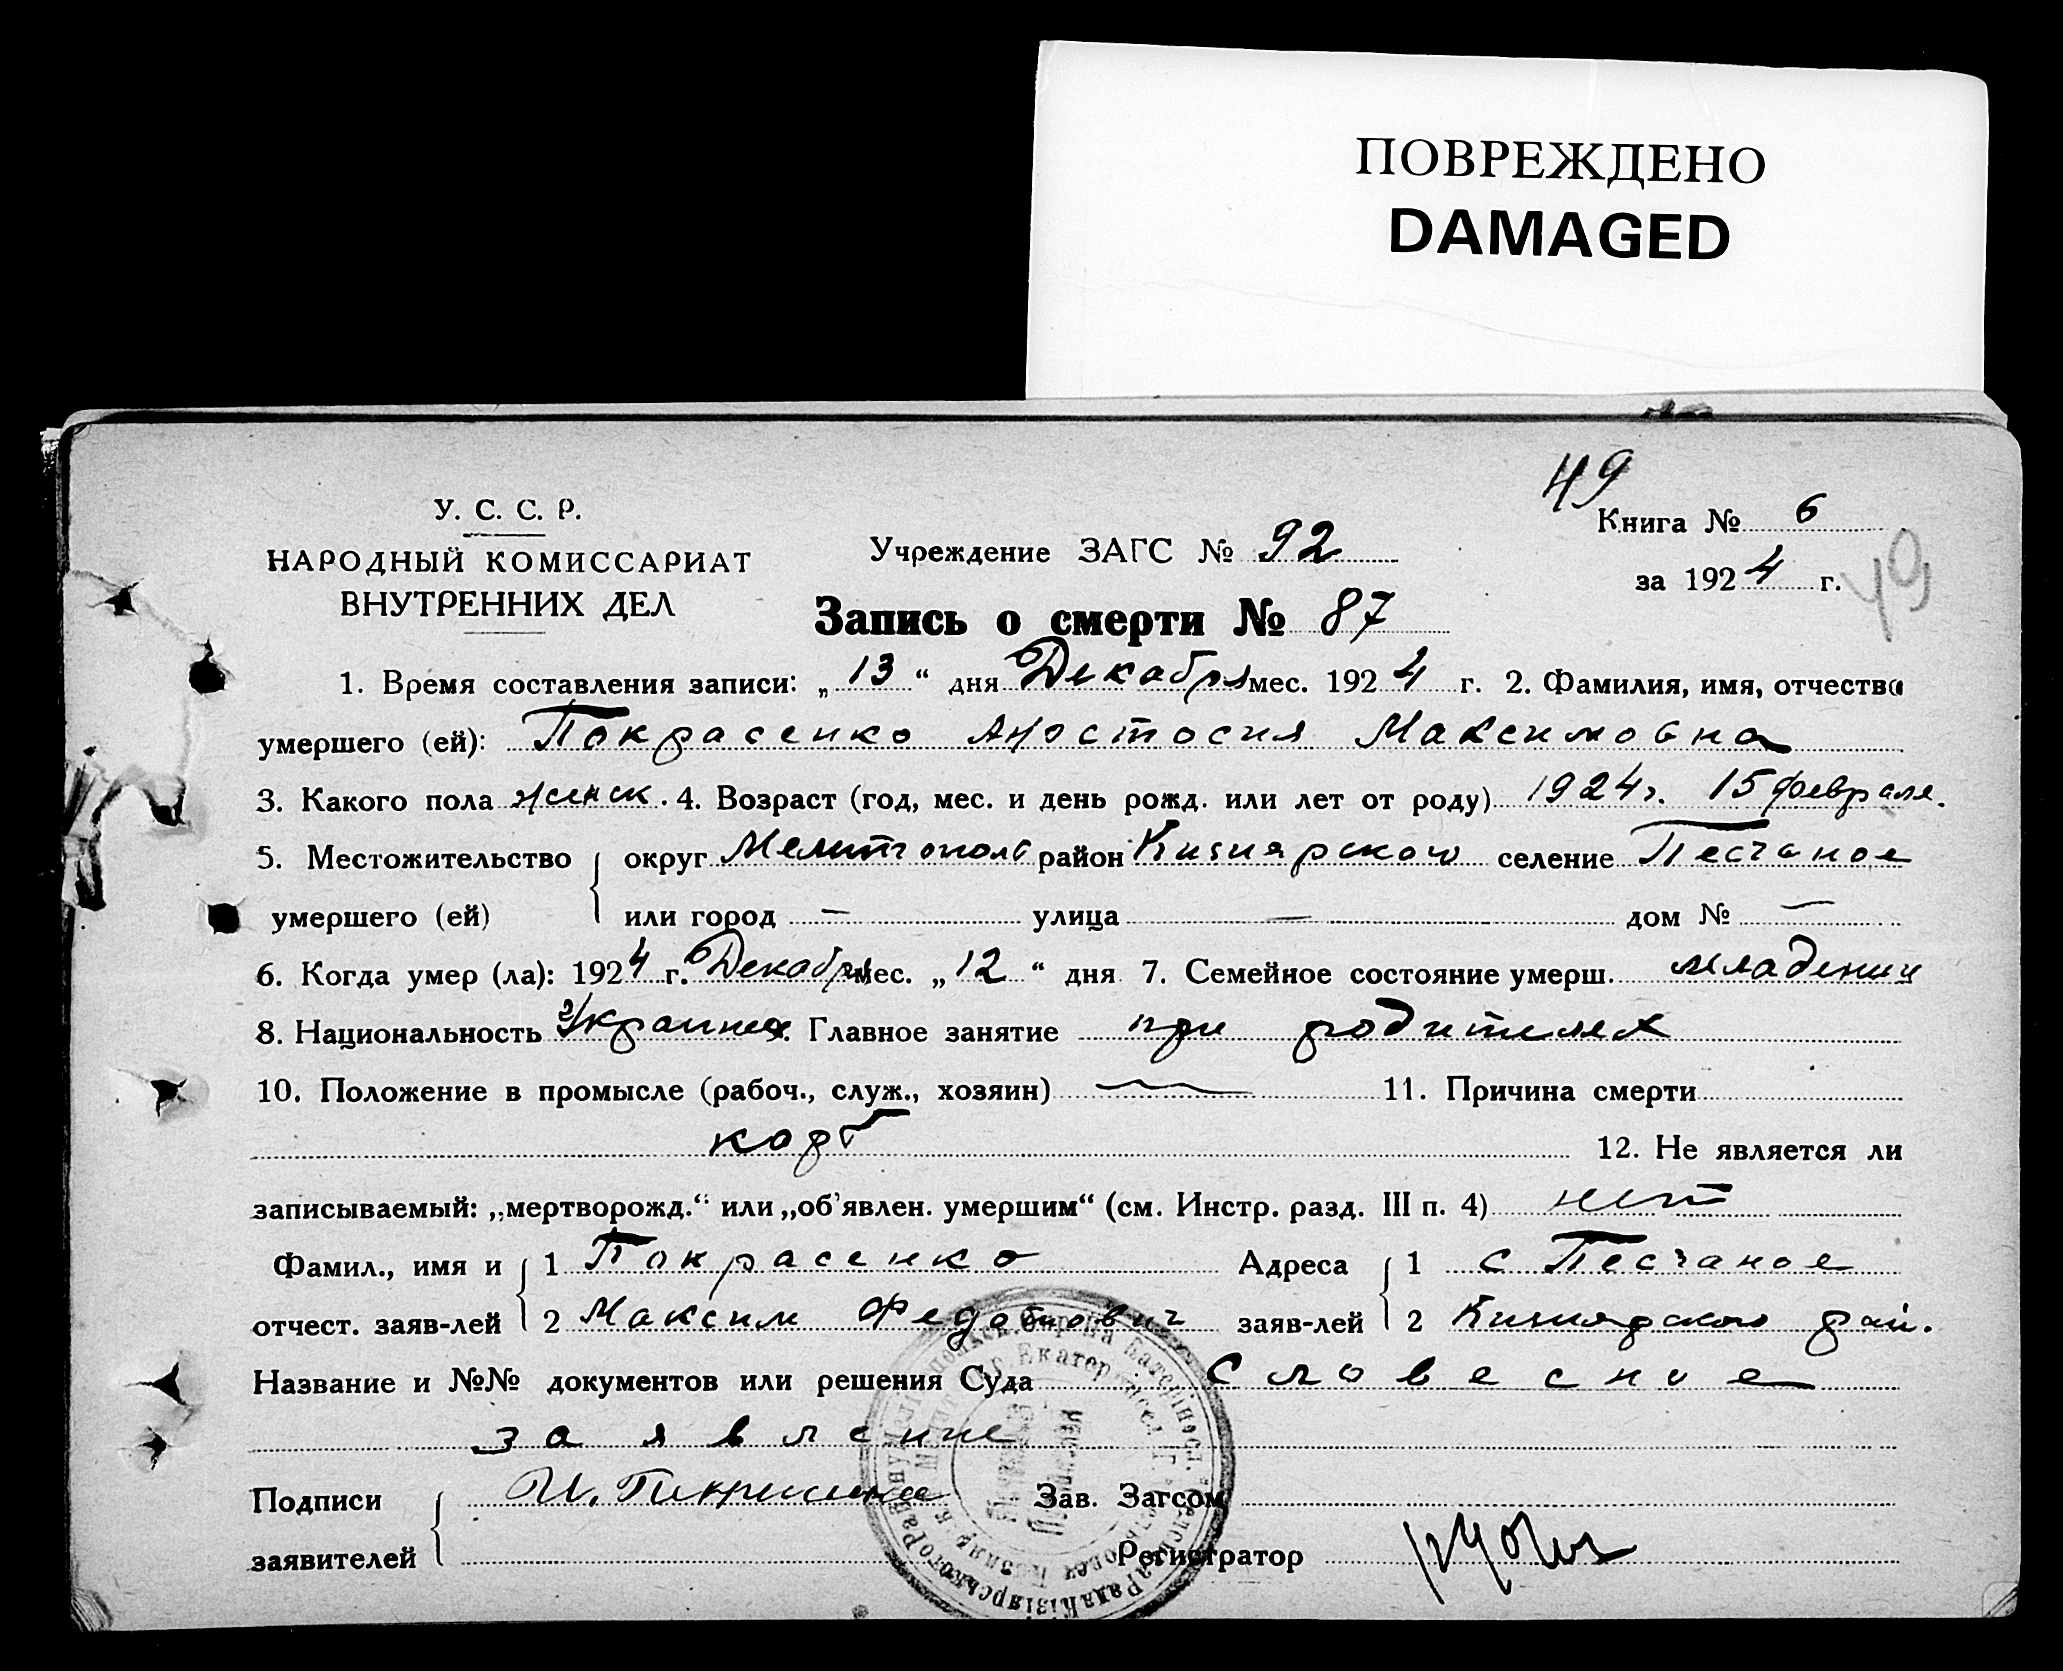 ПОВРЕЖДЕНО
DAMAGED
49
У. С. С. Р.
НАРОДНЫЙ КОМИССАРИАТ
ВНУТРЕННИХ ДЕЛ
Учреждение ЗАГС № 92
Книга № 6
за 1924 г. 49
Запись о смерти № 87
1. Время составления записи: „13“ дня Декабря мес. 1924 г. 2. Фамилия, имя, отчество
умершего (ей): Покрасенко Аностосия Максимовна
3. Какого пола женск. 4. Возраст (год, мес. и день рожд. или лет от роду) 1924 г. 15 февраля.
5. Местожительство округ Мелитополь район Кизиярского селение Песчаное
умершего (ей) или город — улица — дом № —
6. Когда умер (ла): 1924 г. Декабря мес. „12“ дня 7. Семейное состояние умерш. младенец
8. Национальность Украинка Главное занятие при родителях
10. Положение в промысле (рабоч., служ., хозяин) — 11. Причина смерти
корь 12. Не является ли
записываемый: „мертворожд.“ или „об'явлен. умершим“ (см. Инстр. разд. III п. 4) нет
Фамил., имя и 1 Покрасенко Адреса 1 с Песчаное
отчест. заяв-лей 2 Максим Федотович заяв-лей 2 Кизиярского рай.
Название и №№ документов или решения Суда Словесное
заявление
Подписи Зав. Загсом
заявителей Регистратор